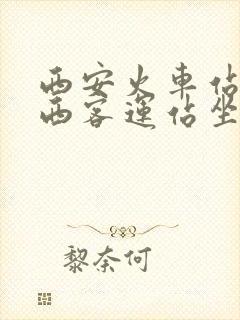 西安火車佔
西客運佔坐
黎奈何